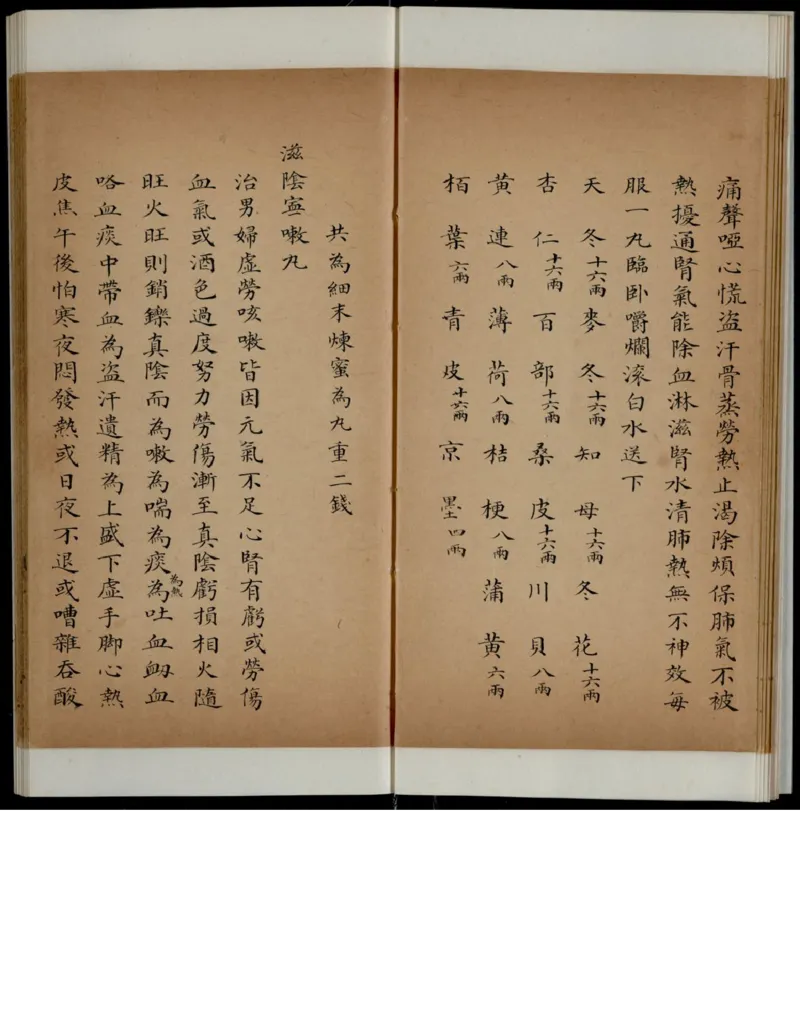 痛聲啞心慌盜汗骨蒸勞熱止渴除煩保肺氣不被
熱擾通腎氣能除血淋滋腎水清肺熱無不神效每
服一丸臨臥嚼爛滾白水送下
天冬十六兩麥冬十六兩知母十六兩冬花十六兩
杏仁十六兩百部十六兩桑皮十六兩川貝八兩
黃連八兩薄荷八兩桔梗八兩蒲黃六兩
栢葉六兩青皮十六兩京墨四兩
共為細末煉蜜為丸重二錢
滋陰寧嗽丸
治男婦虛勞咳嗽皆因元氣不足心腎有虧或勞傷
血氣或酒色過度努力勞傷漸至真陰虧損相火隨
旺火旺則銷鑠真陰而為嗽為喘為痰為熱為吐血衂血
咯血痰中帶血為盜汗遺精為上盛下虛手脚心熱
皮焦午後怕寒夜悶發熱或日夜不退或嘈雜吞酸